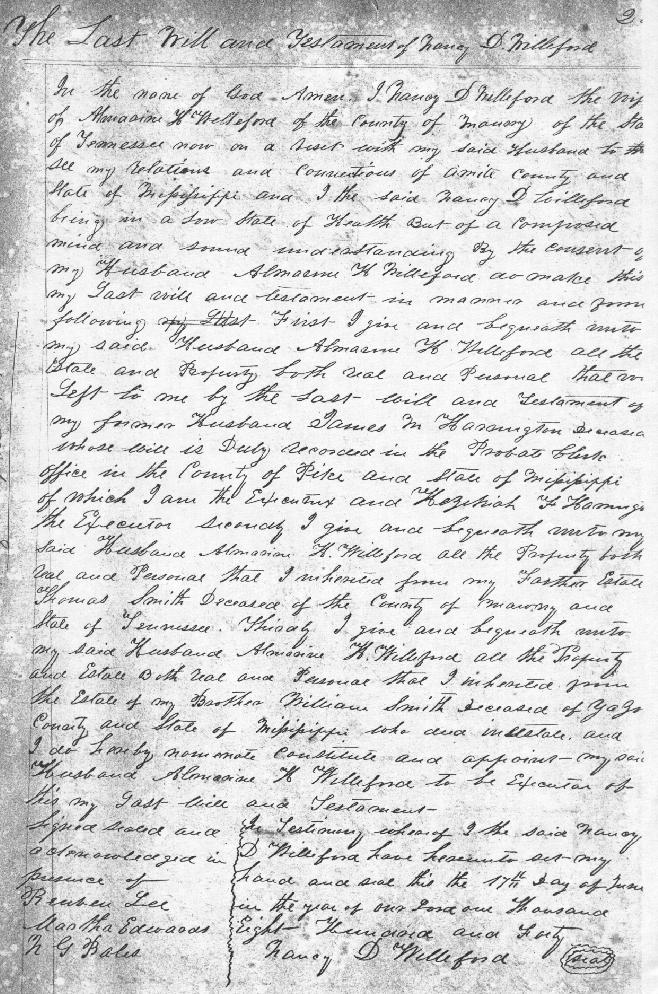 2
The Last Will and Testament of Nancy D Willeford
In the name of God Amen. I Nancy D Willeford the wif
of Almarine H Willeford of the County of Maury of the Sta
of Tennessee now on a visit with my said Husband to
see my relations and connections of Amite County and
State of Mississippi and I the said Nancy D Willeford
being in a low State of Health But of a composed
mind and sound understanding By the consent o
my Husband Almarine H Willeford do make this
my Last will and testament in manner and form
following my Last First I give and bequeath unto
my said Husband Almarine H Willeford all the
Estate and Property both real and Personal that w
Left to me by the Last will and Testament of
my former Husband James M Harrington Decease
whose will is Duly recorded in the Probate Clerk
office in the County of Pike and State of Mississippi
of which I am the Executrix and Hezekiah F Harring
the Executor secondly I give and bequeath unto my
said Husband Almarine H. Willeford all the Property both
real and Personal that I inherited from my Farther Estate
Thomas Smith Deceased of the County of Maurry and
State of Tennessee. Thirdly I give and bequeath unto
my said Husband Almarine H. Willeford all the Property
and Estate Both real and Personal that I inherited from
the Estate of my Brother William Smith Deceased of Yazo
County and State of Mississippi who died intestate. and
I do hereby nominate Constitute and appoint my sai
Husband Almarine H Willeford to be Executor of
this my Last will and Testament
Signed sealed and
acknowledged in
presence of
Reuben Lee
Martha Edwards
N G Bales
In Testimony whereof I the said Nancy
D Willeford have hereunto set my
hand and seal this the 17th Day of June
in the year of our Lord one Thousand
Eight Hundred and Forty
Nancy D Willeford (seal)